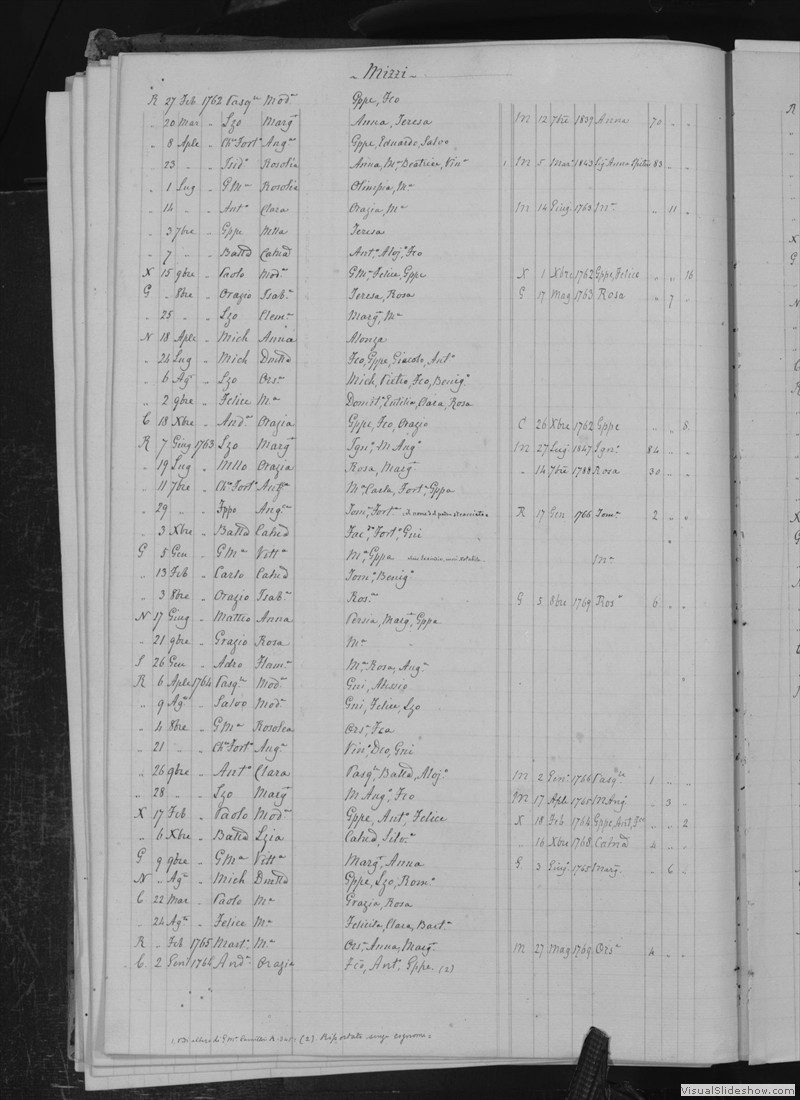 Mizzi
R 27 Feb 1762 Pasqᵉ Modᵃ Gppe, Fco
„ 20 Mar „ Lzo Margᵃ Anna, Teresa M 12 7bre 1839 Anna 70 „ „
„ 8 Aple „ Chᵒ Fortᵒ Angᵃ Gppe, Eduardo, Salvo
„ 23 „ „ Rosolia Anna, Mᵃ Beatrice, Vinᵃ 1 M 5 Mar 1843 Anna 83 „ „
„ 1 Lug „ GMᵃ Rosolia Olimpia, Mᵃ
„ 14 „ „ Antᵒ Clara Orazia, Mᵃ M 14 Giug 1763 Mᵃ „ 11 „
„ 3 7bre „ Gppe Mtta Teresa
„ 7 „ „ Battᵃ Catnᵃ Antᵒ, Alojᵒ, Fco
X 15 9bre „ Paolo Modᵃ GMᵃ, Felice, Gppe X 1 Xbre 1762 Gppe, Felice „ „ 16
G „ 8bre „ Orazio Isabᵃ Teresa, Rosa G 17 Mag 1763 Rosa „ 7 „
„ 25 „ „ Lzo Clemᵃ Margᵃ, Mᵃ
N 18 Aple „ Mich Anna Alonza
„ 24 Lug „ Mich Dmttᵃ Fco, Gppe, Giacolo, Antᵒ
„ 6 Agᵒ „ Lzo Orsᵃ Mich, Pietro, Fco, Benigᵒ
„ 2 9bre „ Felice Mᵃ Domitᵃ, Clara, Rosa
C 18 Xbre „ Andᵃ Orazia Gppe, Fco, Orazio C 26 Xbre 1762 Gppe „ „ 8
R 7 Giug 1763 Lzo Margᵃ Ignᵒ, M Angᵒ M 27 Lug 1847 Ignᵒ 84 „ „
„ 19 Lug „ Mllo Orazia Rosa, Margᵃ „ 14 7bre 1788 Rosa 30 „ „
„ 11 7bre „ Chᵒ Fortᵒ Anttᵃ Mᵃ Carla, Fortᵃ, Gppa
„ 29 „ „ Fppo Angᵃ Tomᵒ, Fortᵒ R 17 Gen 1766 Tomᵒ 2 „ „
„ 3 Xbre „ Battᵃ Catnᵃ Fortᵒ, Gni
G 5 Gen „ GMᵃ Vittᵃ Mᵃ, Gppa Mᵃ
„ 13 Feb „ Carlo Catnᵃ Tomᵒ, Benigᵒ
„ 3 8bre „ Orazio Isabᵃ Rosᵃ G 5 8bre 1769 Rosᵃ 6 „ „
N 17 Giug „ Matteo Anna Persia, Margᵃ, Gppe
„ 21 9bre „ Grazio Rosa Mᵃ
S 26 Gen „ Adeo Flamᵃ Mᵃ, Rosa, Angᵃ
R 6 Aple 1764 Pasqᵉ Modᵃ Gni, Alessio
„ 9 Agᵒ „ Salvo Modᵃ Gni, Felice, Lzo
„ 4 8bre „ GMᵃ Rosolea Orsᵃ, Fca
„ 21 „ „ Chᵒ Fortᵒ Angᵃ Vinᵒ, Dco, Gni
„ 26 9bre „ Antᵒ Clara Pasqᵉ, Battᵃ, Alojᵒ M 2 Gen 1766 Pasqˡᵉ 1 „ „
„ 28 „ „ Lzo Margᵃ M Angᵒ, Fco M 17 Aple 1765 M Ang „ 3 „
X 17 Feb „ Paolo Modᵃ Gppe, Antᵒ, Felice X 18 Feb 1764 Gppe, Ant, Fᵉ „ „ 2
„ 6 Xbre „ Battᵃ Lzia Catnᵃ, Silvᵃ „ 16 Xbre 1768 Catriᵃ 4 „ „
G 9 9bre „ GMᵃ Vittᵃ Margᵃ, Anna G 3 Giug 1765 Margᵃ „ 6 „
N „ Agᵒ „ Mich Dmttᵃ Gppe, Lzo, Romᵒ
C 22 Mar „ Paolo Mᵃ Grazia, Rosa
„ 24 Agᵒ „ Felice Mᵃ Felicita, Clara, Bartᵃ
R „ Feb 1765 Martᵒ Mᵃ Orsᵃ, Anna, Margᵃ M 27 Mag 1769 Orsᵃ 4 „ „
C 2 Gen 1766 Andᵃ Orazia Fco, Antᵒ, Gppe (2)
(2) Riportata senza cognome
VisualSlideshow.com